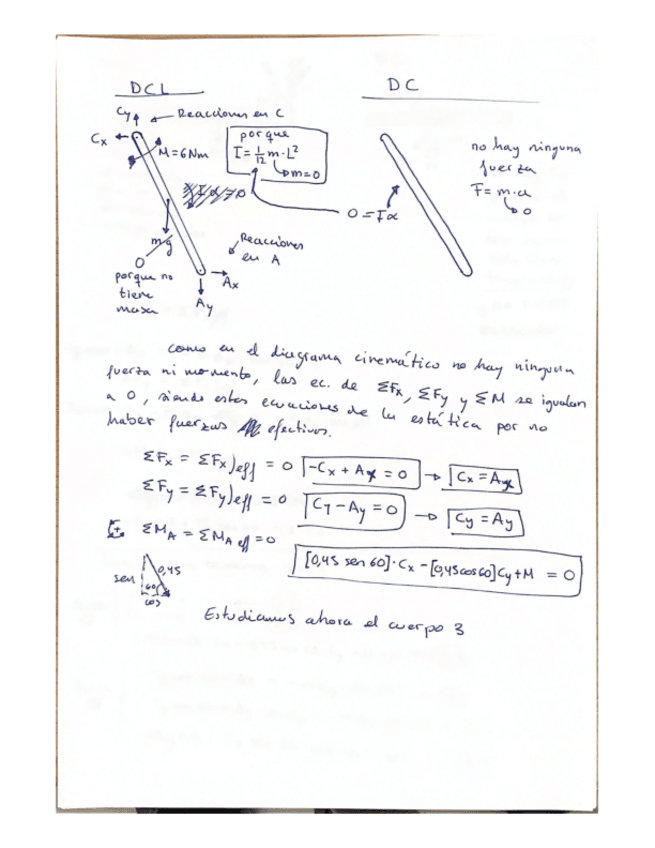 DCL
DC
Cy
Reacciones en C
Cx
M = 6 Nm
porque
I = 1/12 m·L²
m=0
0 = Iα
no hay ninguna
fuerza
F = m·a
0
mg
0
porque no
tiene
masa
Reacciones
en A
Ax
Ay
como en el diagrama cinemático no hay ninguna
fuerza ni momento, las ec. de ΣFx, ΣFy y ΣM se igualan
a 0, siendo estas ecuaciones de la estática por no
haber fuerzas efectivas.
ΣFx = ΣFx)eff = 0 -Cx + Ax = 0 → Cx = Ax
ΣFy = ΣFy)eff = 0 Cy - Ay = 0 → Cy = Ay
ΣMA = ΣMA eff = 0
[0,45 sen 60]·Cx - [0,45cos60]Cy + M = 0
sen
0,45
60
cos
Estudiamos ahora el cuerpo 3